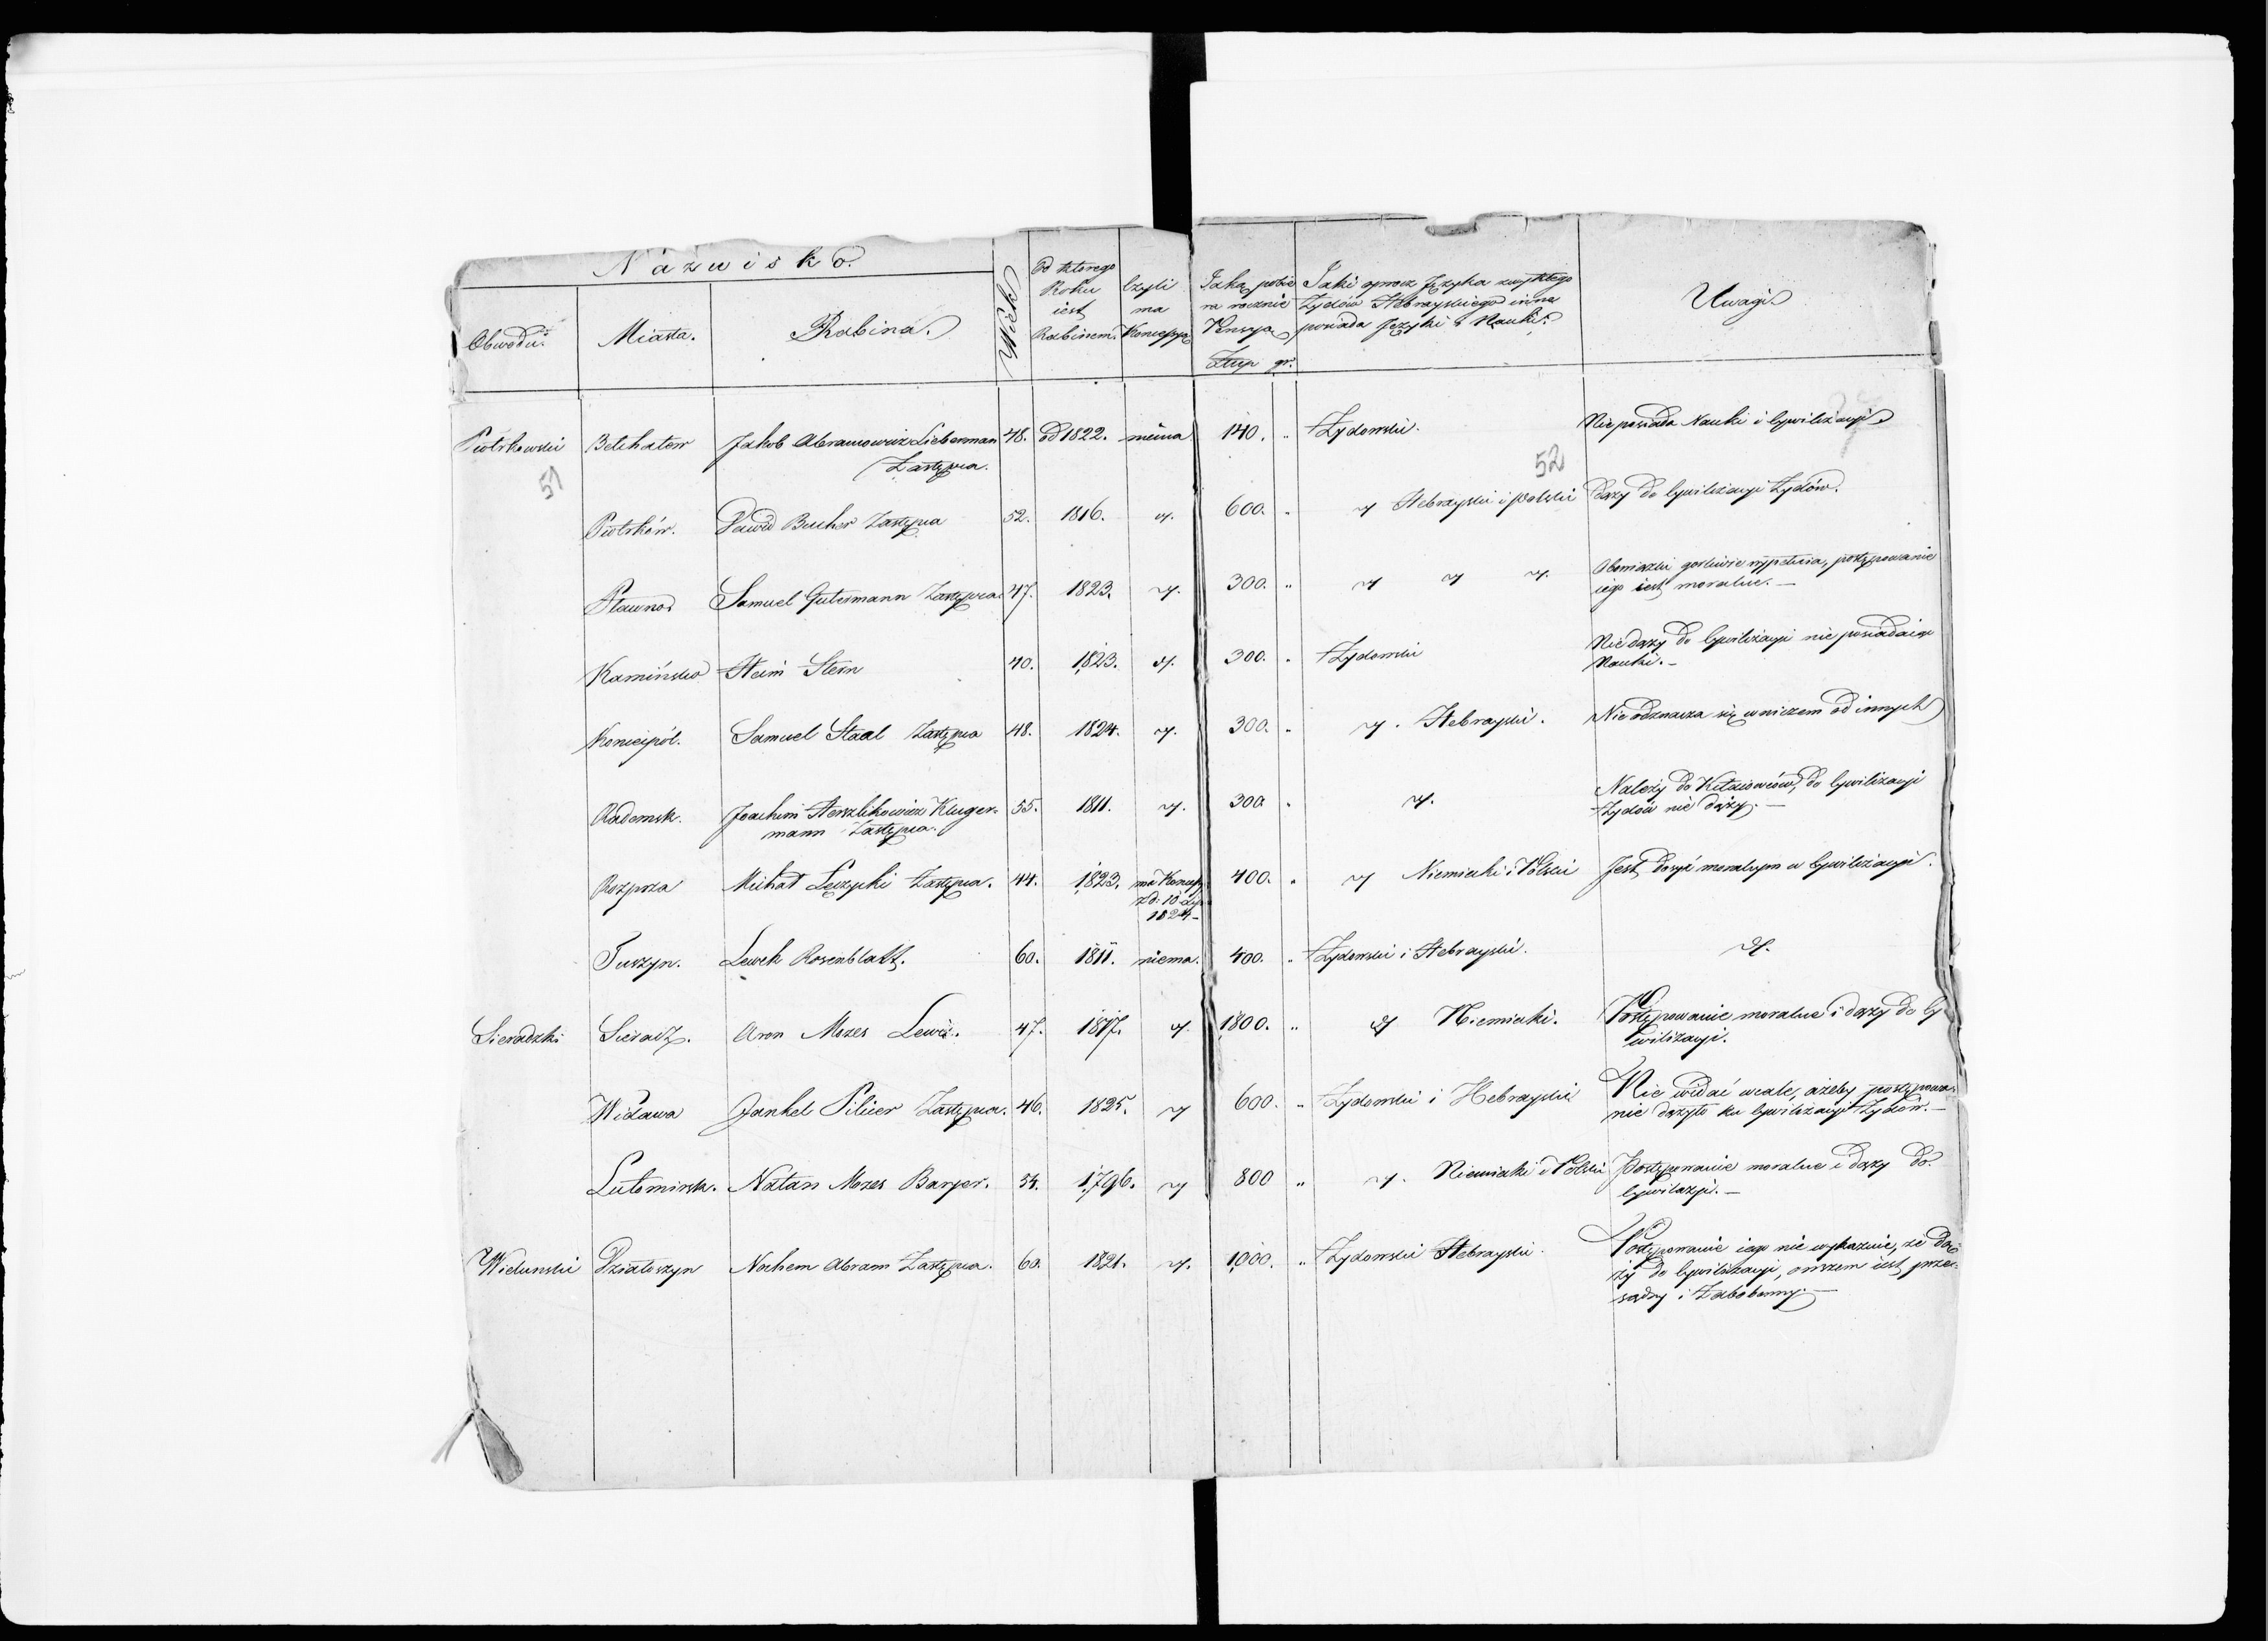 Nazwisko.
Obwodu. Miasta. Rabina. Wiek Od którego Roku iest Rabinem. Czyli ma Koncessyą Jaką pobiera rocznie Pensyą Złtp gr. Jaki oprocz Języka zwykłego Żydów Hebrayskiego inne posiada Języki i Nauki. Uwagi
Piotrkowski Bełchatow Jakob Abramowicz Lieberman 48. od 1822. niema 140. „ Żydowski. Nie posiada Nauki i Cywilizacyi
Zastępca.
51 52
Piotrków. Dawid Bucher Zastępca 52. 1816. „ 600. „ „ Hebrayski i Polski Dąży do Cywilizacyi Żydów.
Pławno Samuel Gutermann Zastępca. 47. 1823. „ 300. „ „ „ „ Obowiązki gorliwie wypełnia, postępowanie
iego iest moralne. —
Kamińsko Heim Stern 40. 1823. „ 300. „ Żydowski Nie dąży do Cywilizacyi nie posiadaiąc
Nauki. —
Koniecpól. Samuel Staal Zastępca 48. 1824. „ 300. „ „ Hebrayski. Nie odznacza się w niczem od innych
Radomsk. Joachim Herszlikowicz Kluger- 55. 1811. „ 300 „ „ Należy do Kitaiowców, do Cywilizacyi
mann Zastępca. Żydów nie dąży. —
Rozprza Michał Łęczycki Zastępca. 44. 1823. ma Koncess. 400. „ „ Niemiecki i Polski Jest dosyć moralnym w Cywilizacyi.
z d: 10 Lip.
1824 —
Tuszyn. Lewek Rosenblatt. 60. 1811. niema. 400. „ Żydowski i Hebrayski. „
Sieradzki Sieradz. Aron Mozes Lewi. 47. 1817. „ 1,800. „ „ Niemiecki. Postępowanie moralne i dąży do Cy
wilizacyi.
Widawa Jankel Pilicer Zastępca. 46. 1825. „ 600. „ Żydowski i Hebrayski Nie widać wcale, ażeby postępowa-
nie dążyło ku Cywilizacyi Żydów. —
Lutomirsk. Natan Mozes Baryer. 54. 1,796. „ 800 „ „ Niemiecki i Polski Postępowanie moralne i dąży do
Cywilizacyi. —
Wielunski Działoszyn Nochem Abram Zastępca. 60. 1821. „ 1,000. „ Żydowski Hebrayski. Postępowanie iego nie wykazuie, że dą-
ży do Cywilizacyi, owszem iest prze-
sądny i Zabobonny. —